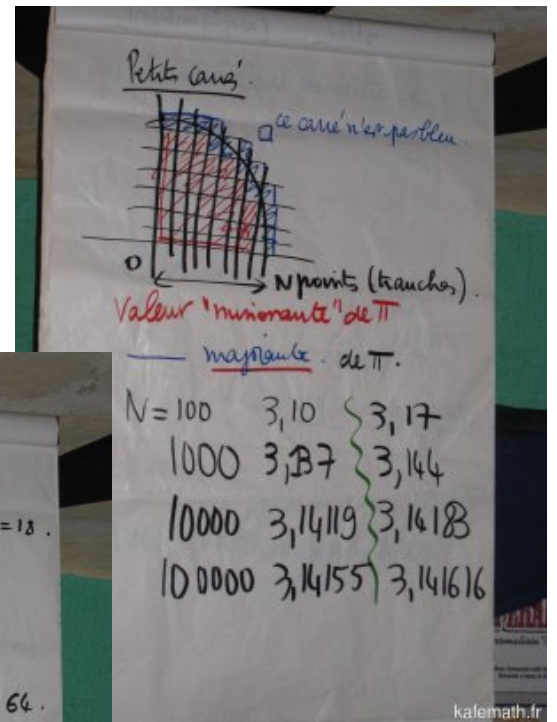 Petits carrés.
ce carré n'est pas bleu.
O
N points (tranches).
Valeur "minorante" de π
— majorante de π.
N = 100 3,10 3,17
1000 3,137 3,144
10000 3,14119 3,14183
100000 3,14155 3,141616
= 18.
64.
katemath.fr